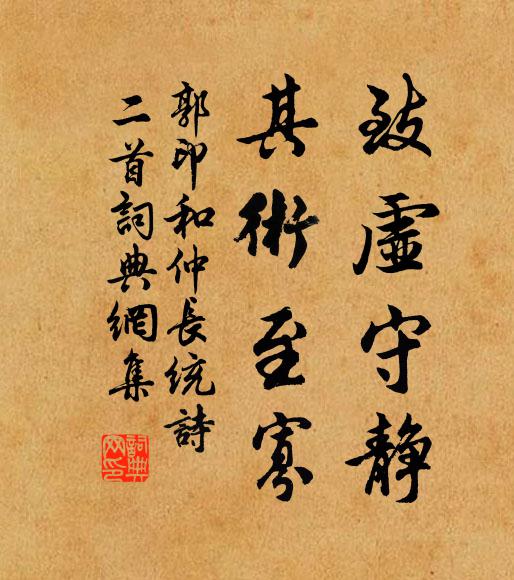 致虛守靜
其術至寡
郭印和仲長統詩
二首詞典網集
詞典
网印